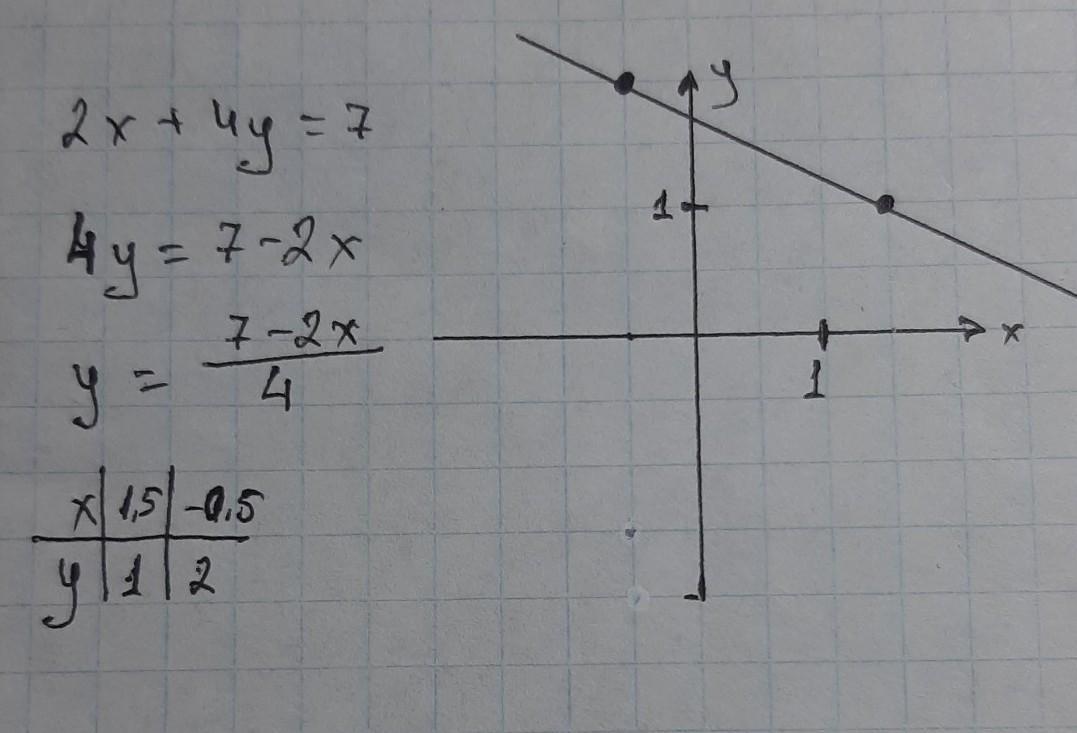 2x + 4y = 7
4y = 7 - 2x
y = (7 - 2x)/4
x | 1,5 | -0,5
y | 1 | 2
y
1
x
1